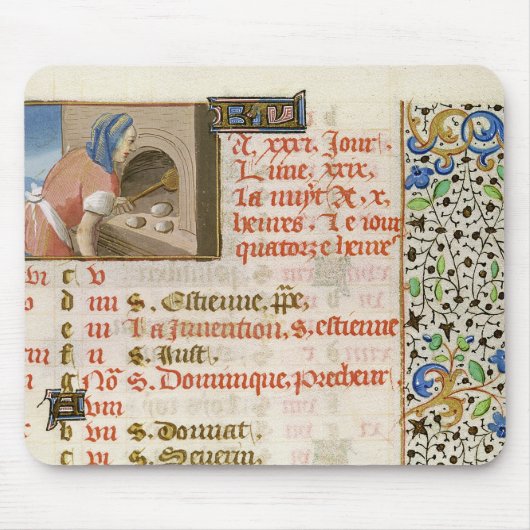 A, xxxi, Jour
Lune, xxix,
la nuyt A, x,
heures, Le iour
quatorze heures
vi c v
d iiii S. Estienne, ppe,
vii e iii La Invention, S. estienne
f ii S. Just,
g No S. Dominique, precheur,
A viii
b vii S. Donnat,
c vi S. Severin,